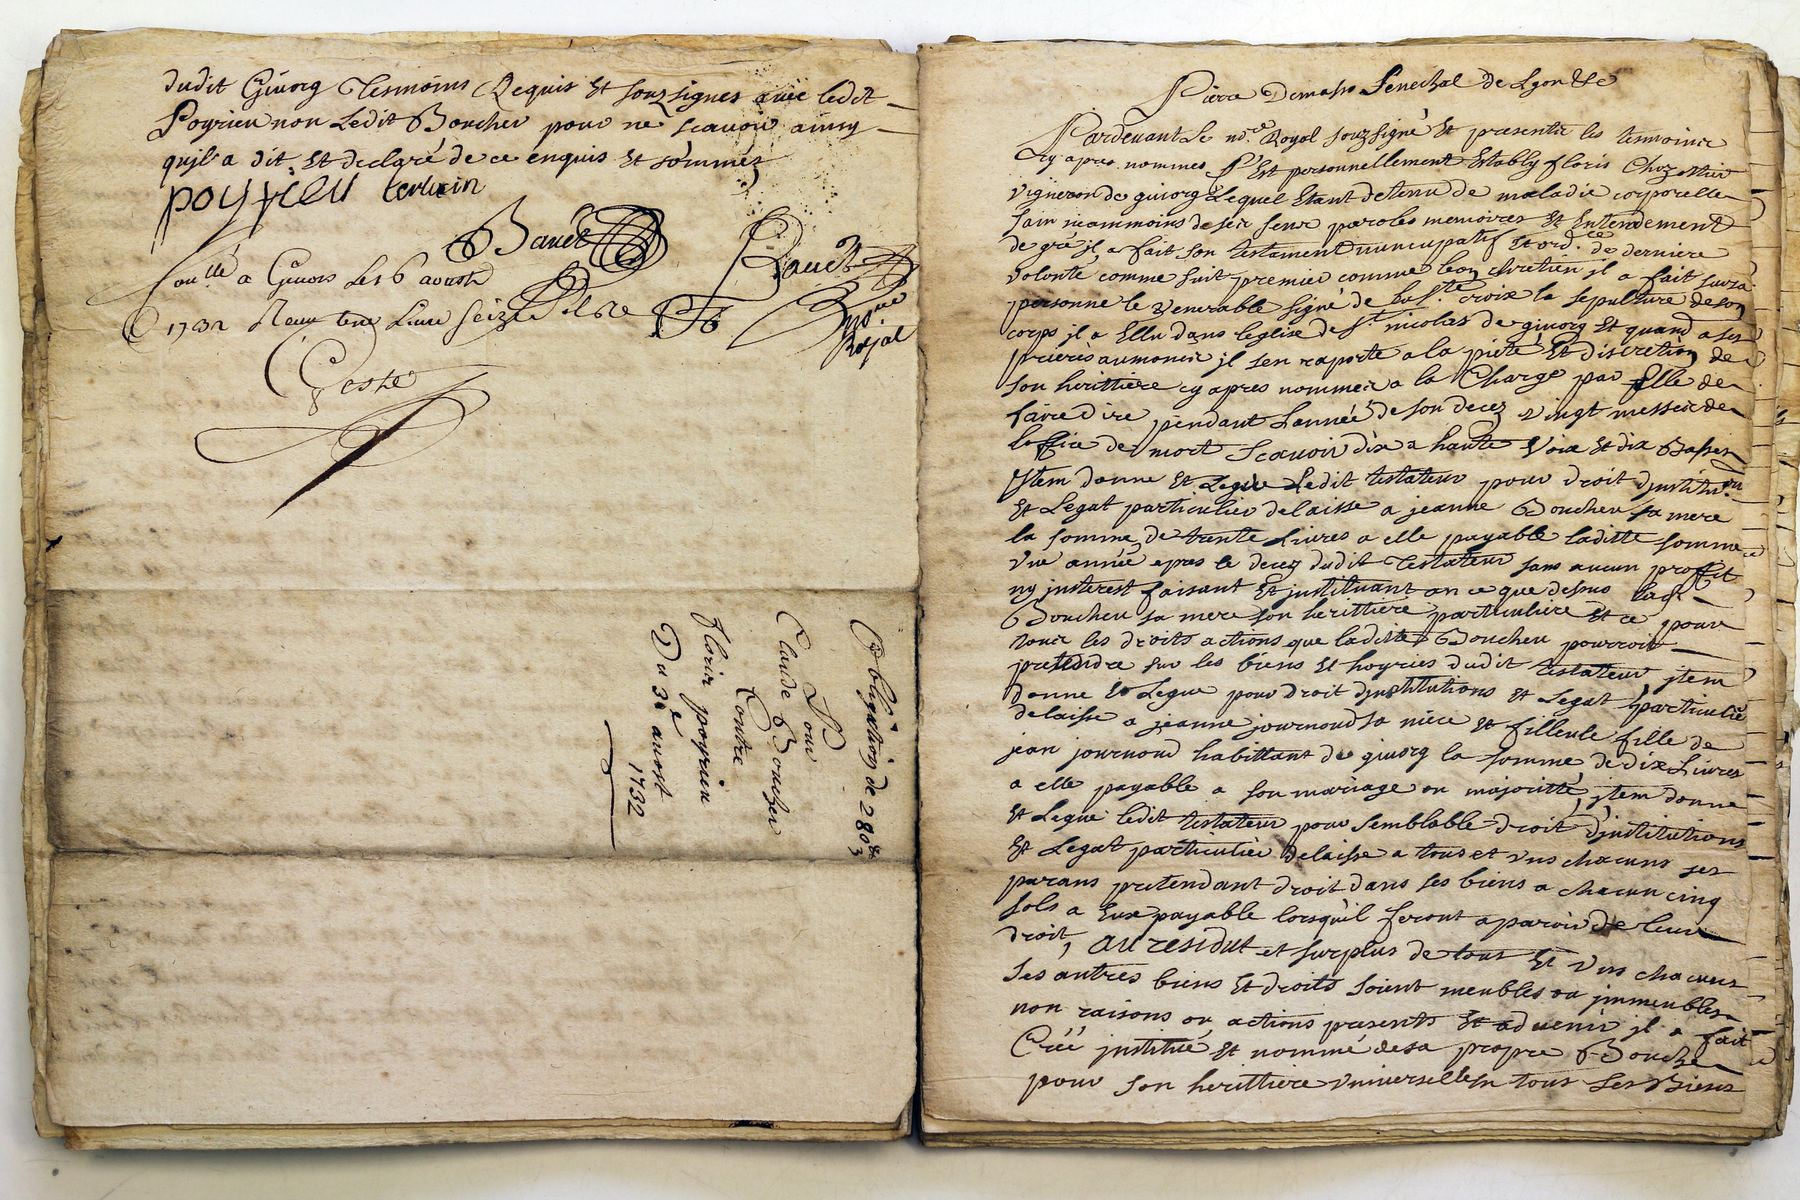 dudit Givorg Tesmoins Requis Et souzsignes avec ledit
Poyrieu non Ledit Boucher pour ne scavoir ainsy
qu'jl a dit Et declaré de ce enquis Et sommés
poyrieu
Banet
Banet
Con.llé a Givors Le 6 aoust
1732 Receu
Royal
Teste
Obligation de 280lt 3
Pour
Claude Boucher
Contre
floris poyrieu
Du 3e aoust
1732
Pierre Demasso Senechal de Lyon &c
Pardevant Le no.re Royal souzsigné Et presents les temoins
cy apres nommes S'Est personnellement Estably floris
vigneron de givorg Lequel Etant detenu de maladie corporelle
sain neammoins de ses sens paroles memoires Et Entendement
de gré jl a fait son testament nuncupatif Et ord.ce de derniere
volonté comme suit premier comme bon chretien jl a fait sur sa
personne le venerable signe de La S.te croix la sepulture de son
corps jl a Ellu dans leglise de S.t nicolas de givorg Et quand a ses
prieres aumones jl sen raporte a la pieté Et discretion de
son herittiere cy apres nommée a la Charge par Elle de
faire dire pendant Lannéé de son decez vingt messes de
loffice de mort Scavoir dix a haute voix Et dix Basses
Jtem donne Et Legue Ledit testateur pour droit djnstitu.on
Et Legat particulier delaisse a jeanne Boucheu sa mere
la somme de trente Livres a elle payable laditte somme
vne année apres le decez dudit Testateur sans aucun proffit
ny jnterest faisant Et jnstituant en ce que dessus lad.
Boucheu sa mere son herittiere particuliere Et ce pour
tous les droits actions que laditte Boucheu pourroit
pretendre sur les biens Et hoyries dudit testateur jtem
donne Et Legue pour droit djnstitutions Et Legat particulié
delaisse a jeanne journoud sa niece Et filleule fille de
jean journoud habittant de givorg la somme de dix Livres
a elle payable a son mariage ou majoritté jtem donne
Et Legue ledit testateur pour semblable droit d'jnstitutions
Et Legat particulier delaisse a tous et vns chacuns ses
parans pretendant droit dans ses biens a chacun cinq
sols a Eux payable lorsqu'jl feront aparoir de leur
droit, au residut et surplus de tous Et vns chacuns
Ses autres biens Et droits soient meubles ou jmmeubles
non raisons ou actions presents Et advenir jl a fait
Créé justitué Et nommé de sa propre Bouche
pour son herittiere vniverselle En tous ses Biens